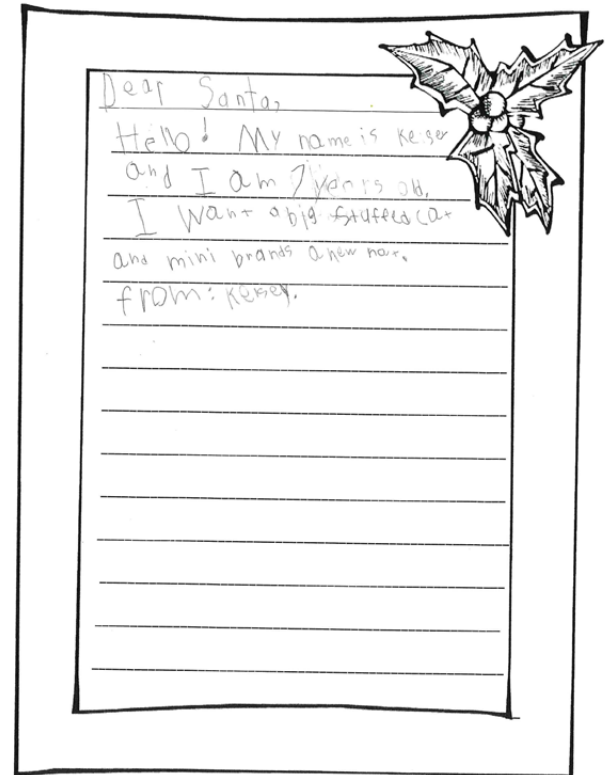 Dear Santa,
Hello! My name is Keiser
and I am 7 years old.
I want a big stuffed cat
and mini brands a new hat.
from: Keiser.